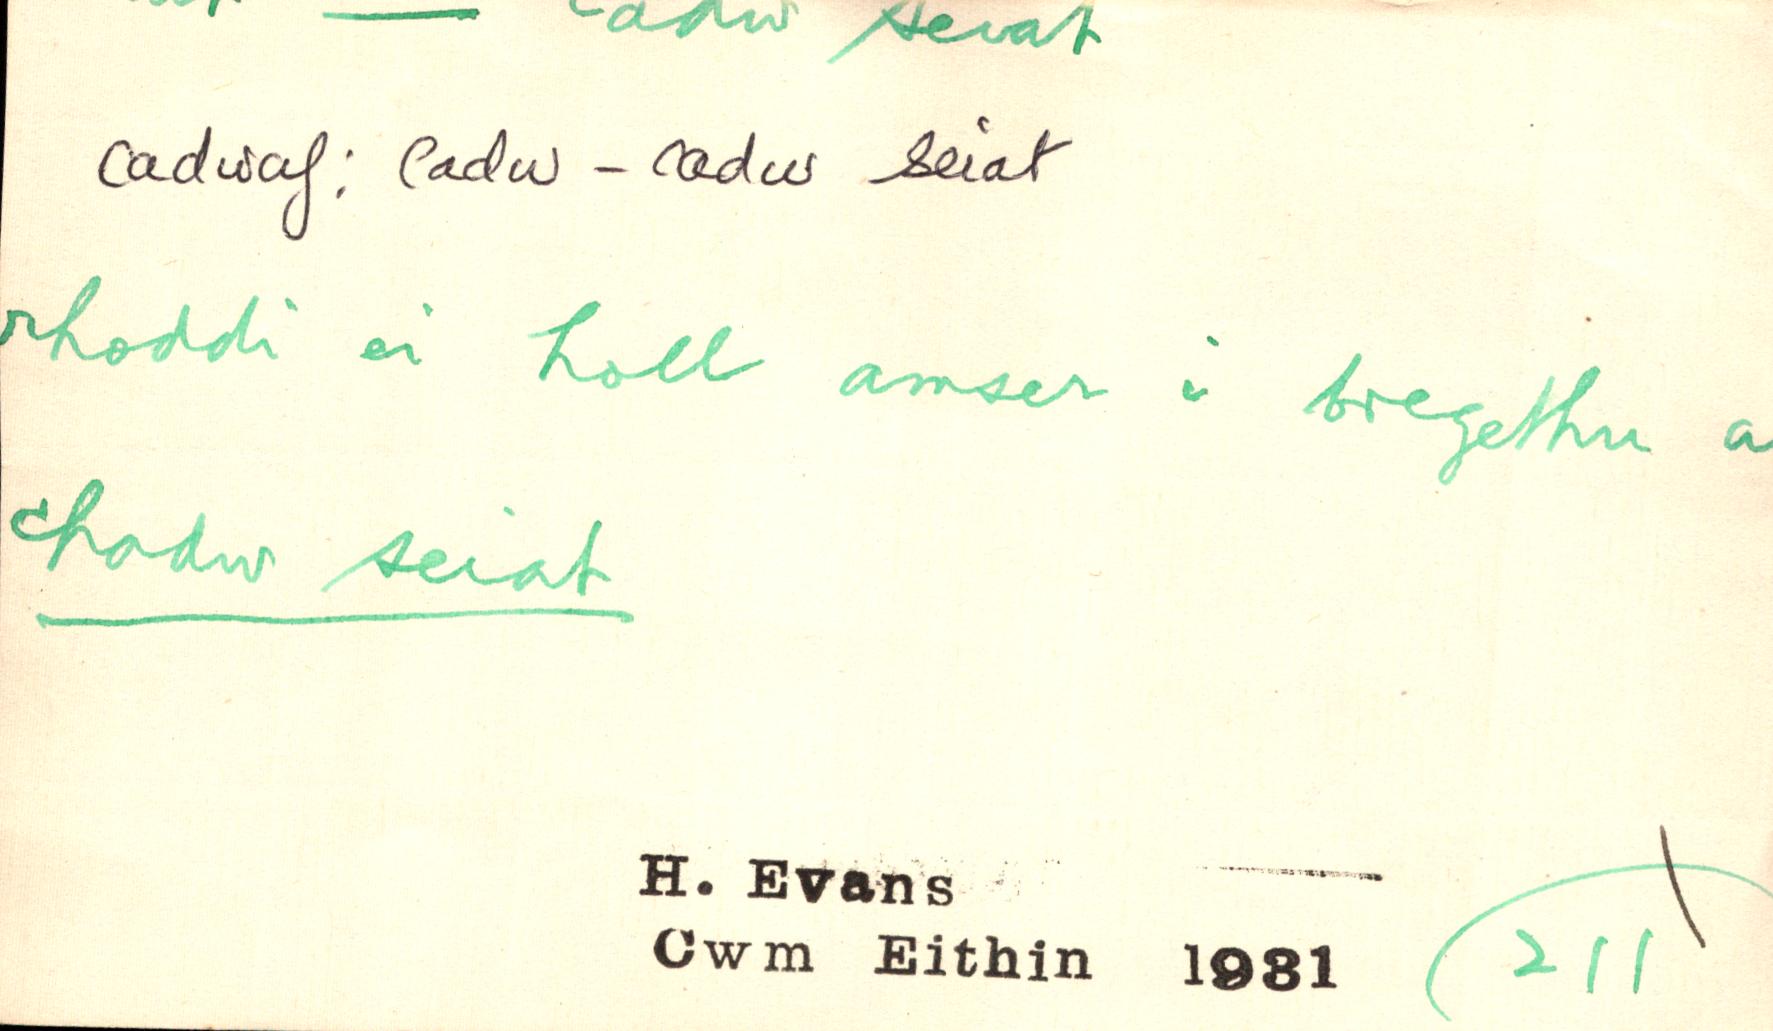 cadw seiat
cadwaf: cadw - cadw seiat
rhoddi ei holl amser i bregethu a
chadw seiat
H. Evans
Cwm Eithin 1931
211